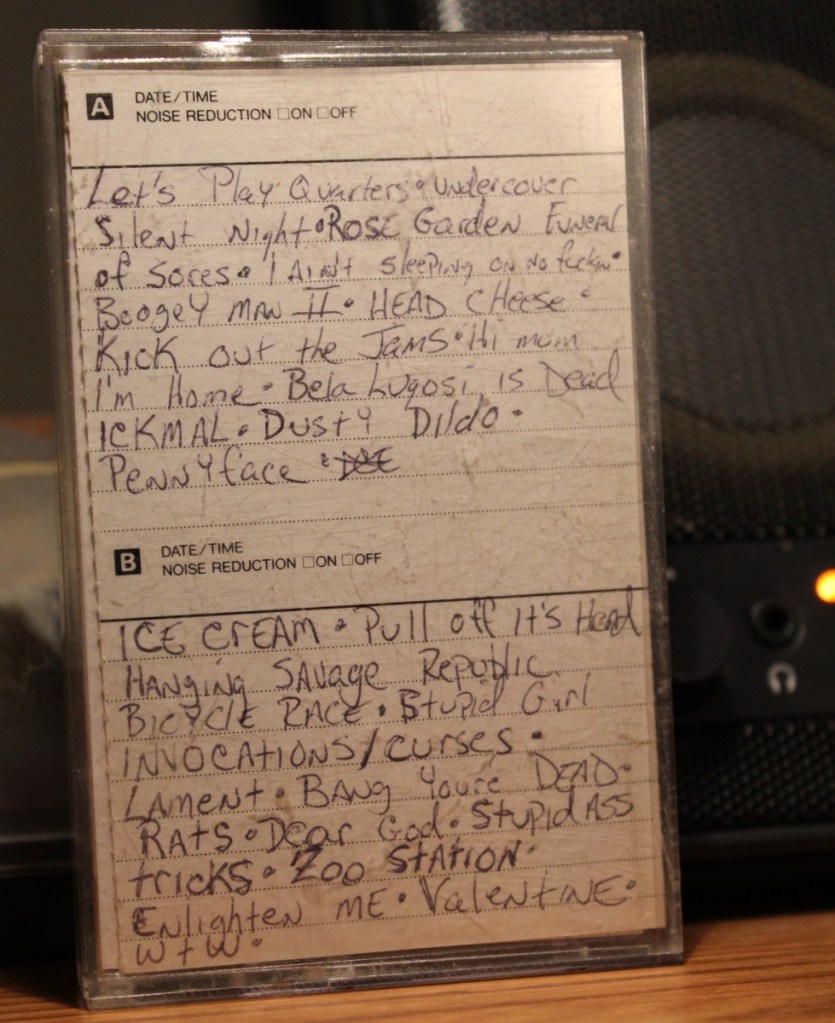 A DATE/TIME
NOISE REDUCTION □ON □OFF
Let's Play Quarters • undercover
Silent Night • Rose Garden Funeral
of Sores • I Ain't Sleeping on no fuckin •
Boogey man II • HEAD CHeese •
Kick out the Jams • Hi mum
I'm Home • Bela Lugosi is Dead
ICKMAL • Dusty Dildo •
Pennyface •
B DATE/TIME
NOISE REDUCTION □ON □OFF
ICE CREAM • Pull off It's Head
HANGING SAVAGE Republic
BICYCLE RACE • Stupid Girl
INVOCATIONS/CURSES •
LAMENT • BANG You're DEAD •
RATS • Dear God • Stupid ASS
tricks • Zoo STATION •
Enlighten ME • Valentine •
W + W •